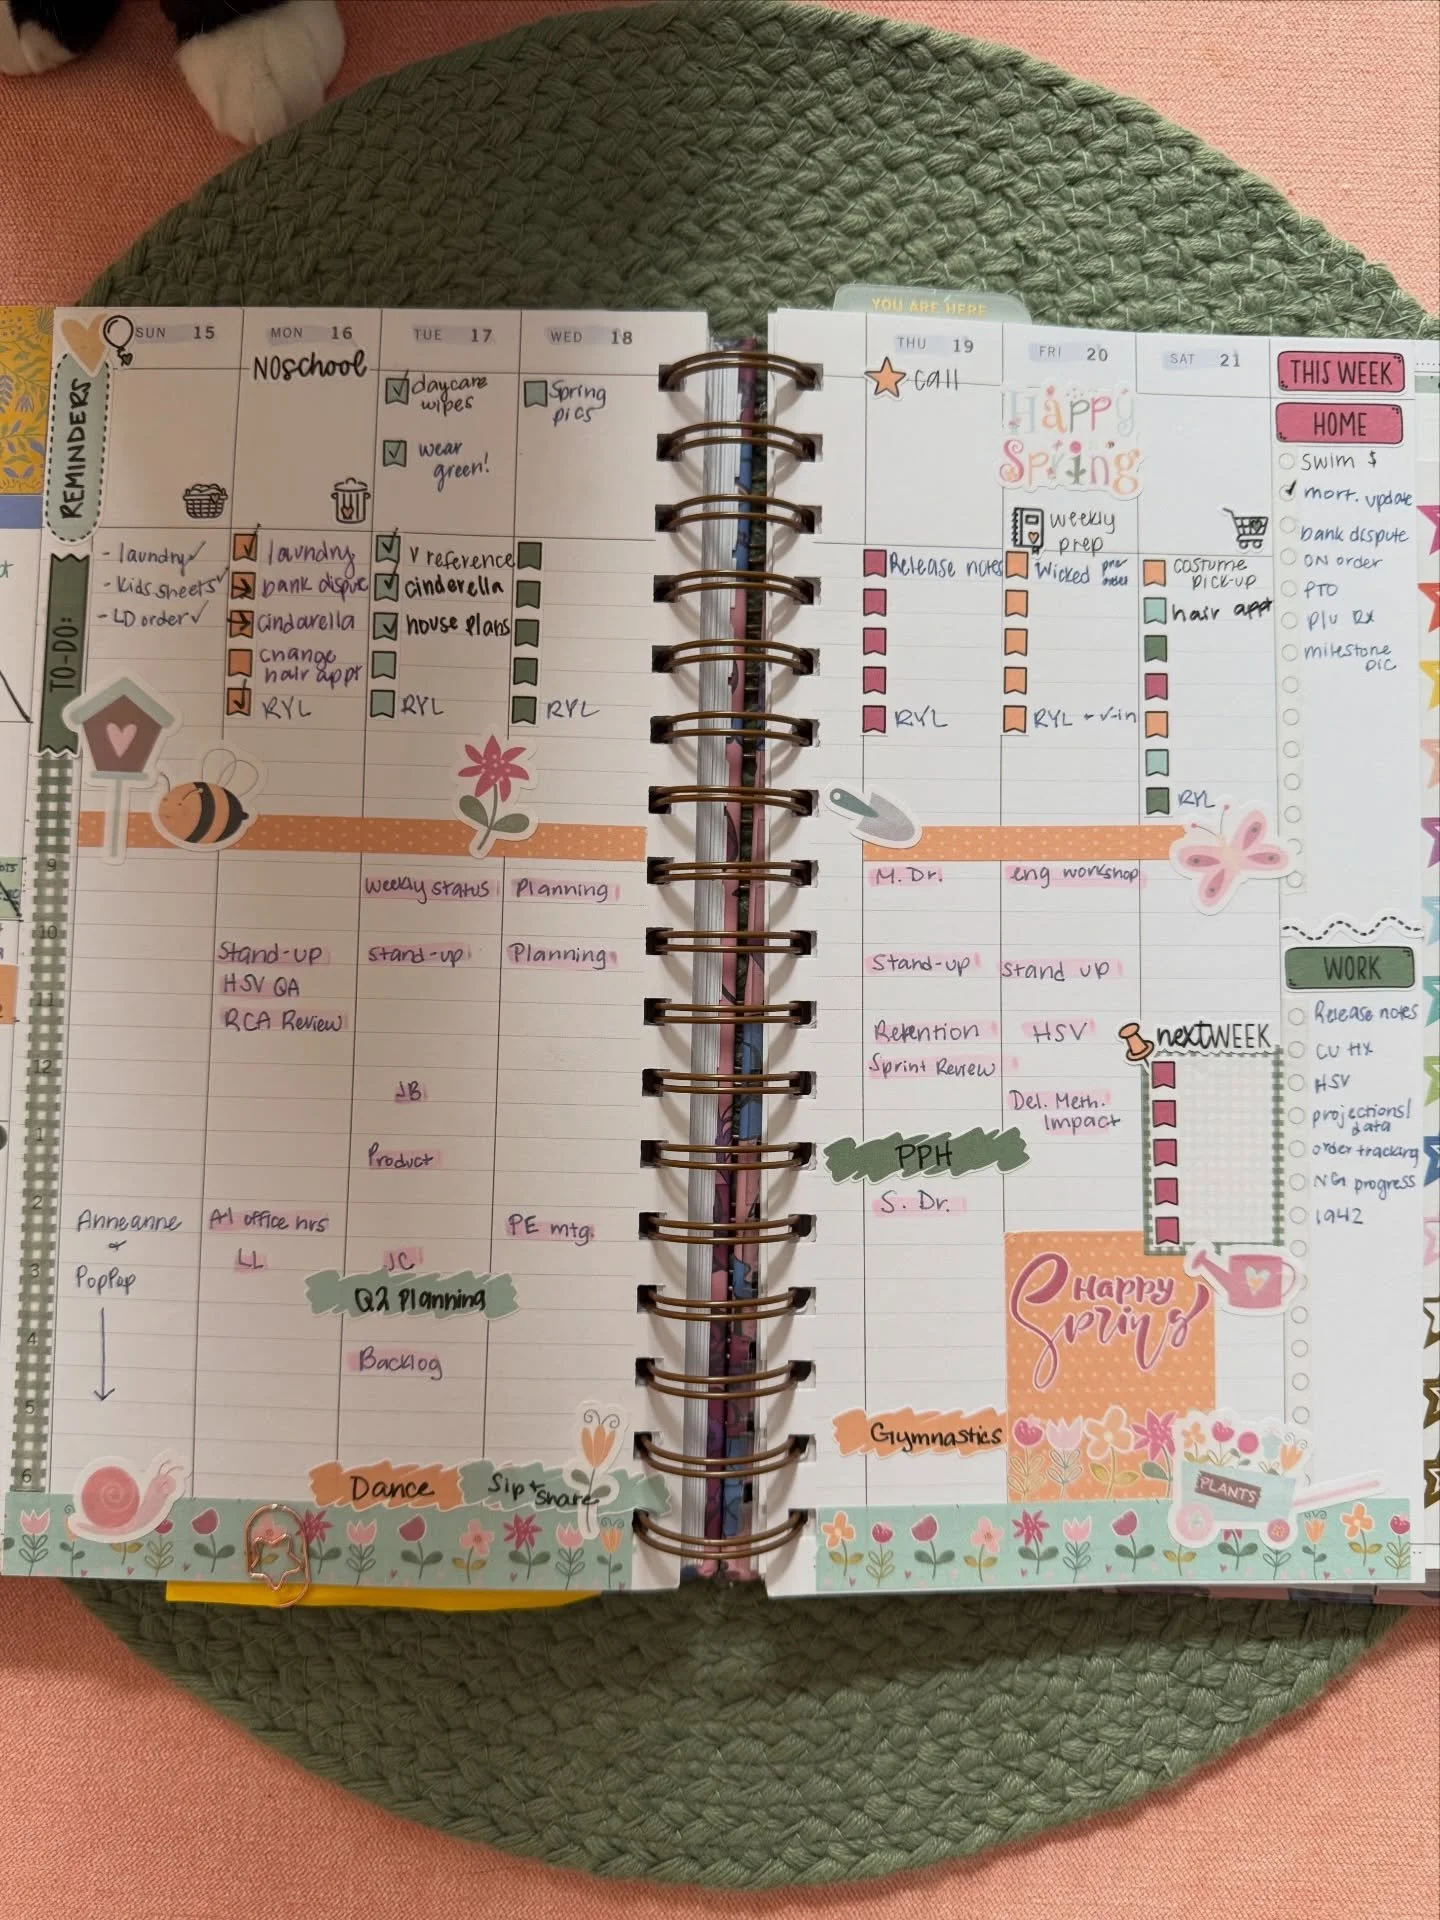 YOU ARE HERE
REMINDERS
SUN 15
MON 16
NO school
TUE 17
daycare
wipes
wear
green!
WED 18
Spring
pics
TO-DO:
- laundry
- Kids sheets
- LD order
laundry
bank dispute
cindarella
change
hair appt
RYL
V reference
cinderella
house plans
RYL
RYL
9
10
11
12
1
2
3
4
5
6
Anneanne
+
PopPop
Stand-up
HSV QA
RCA Review
A-1 office hrs
LL
weekly status
stand-up
JB
Product
JC
Q2 Planning
Backlog
Dance
Planning
Planning
PE mtg.
Sip + Share
THU 19
call
FRI 20
Happy
Spring
weekly
prep
SAT 21
Release notes
RYL
Wicked pre
order
RYL + v-in
costume
pick-up
hair appt
RYL
M. Dr.
Stand-up
Retention
Sprint Review
PPH
S. Dr.
Gymnastics
eng workshop
Stand up
HSV
Del. Meth.
Impact
Happy
Spring
next WEEK
PLANTS
THIS WEEK
HOME
Swim $
mort. update
bank dispute
ON order
PTO
p/u Rx
milestone
pic
WORK
Release notes
CU HX
HSV
projections/
data
order tracking
NG progress
1942